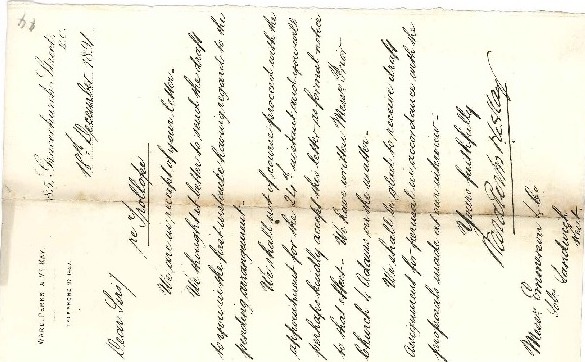 85, Gracechurch Street,
E.C.
18th December 1891
TELEPHONE
Dear Sirs,
re Trollope
We are in receipt of your letter.
We thought it better to send the draft
to you in the first instance having regard to the
pending arrangement.
We shall not of course proceed with the
appointment for the 24th instant and you will
perhaps kindly accept this letter as formal notice
to that effect. We have written Messrs Prior
Church & Adams on the matter.
We shall be glad to receive draft
assignment for perusal in accordance with the
proposals made at our interview.
Yours faithfully
Messrs Emmerson & Co
Sols. Sandwich
Kent.